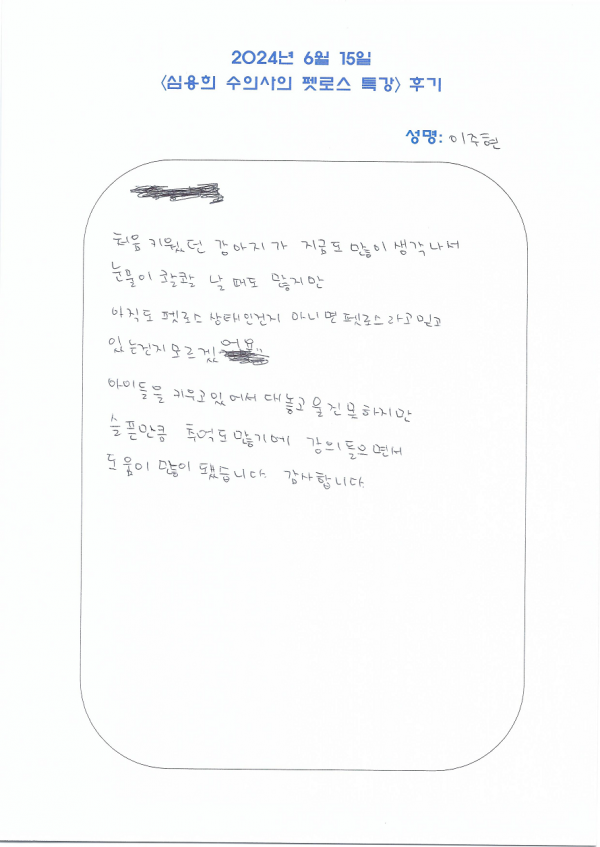 2024년 6월 15일
<심용희 수의사의 펫로스 특강> 후기
성명: 이주현
처음 키웠던 강아지가 지금도 많이 생각나서
눈물이 콸콸 날 때도 많지만
아직도 펫로스 상태인건지 아니면 펫로스라고 믿고
있는건지 모르겠어요..
아이들을 키우고 있어서 대놓고 울진 못하지만
슬픈만큼 추억도 많기에 강의 들으면서
도움이 많이 됐습니다. 감사합니다.